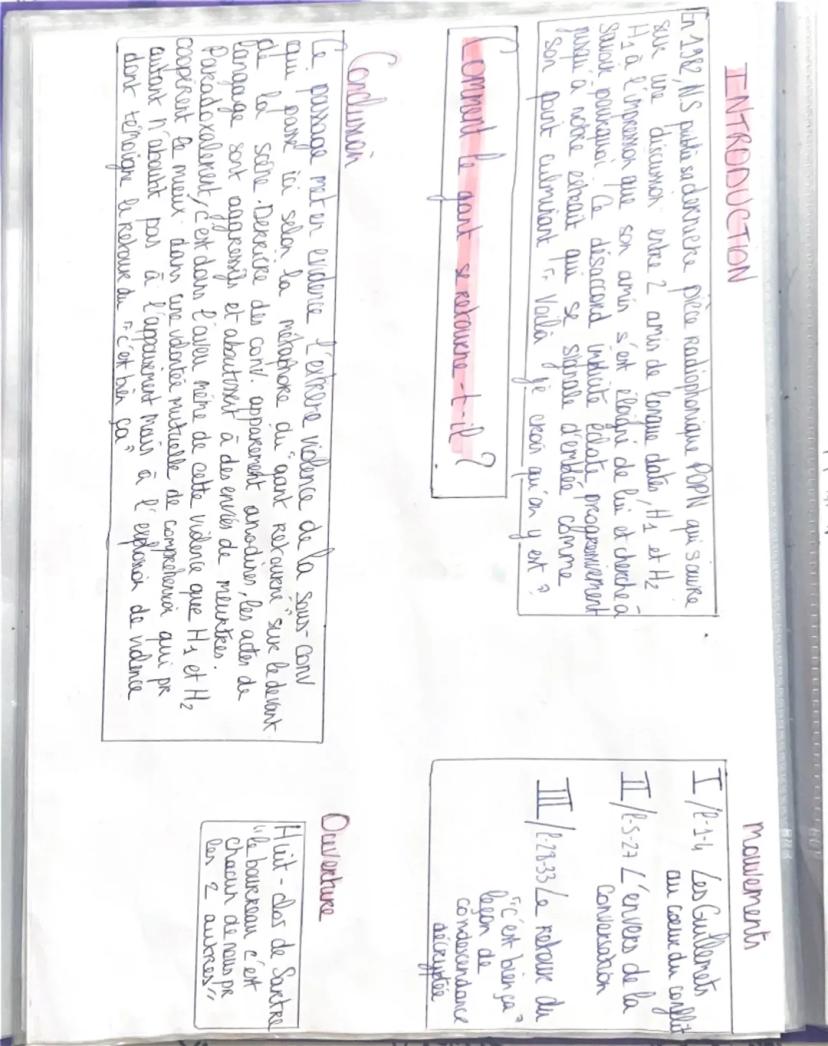 INTRODUCTION
En 1982, NS publie sa dernière pièce radiophonique POPN qui s'ouvre
sur une discussion entre 2 amis de longue datés, H1 et H2
H1 à l'impression que son amis s'est éloigné de lui et cherche à
savoir pourquoi. Ce désaccord indicite éclate progressivement
jusqu'à notre extrait qui se signale d'emblée comme
son point culminant "Voilà je crois qu'on y est"
Comment le gant se retourne-t-il ?
Conclusion
Ce passage met en evidence l'extreme violence de la sous-conv
qui passe ici selon la métaphore du "gant retourné" sur le devant
de la scène. Derrière des conv. apparement anodines, les actes de
langage sont aggressifs et aboutissent à des envies de meurtres.
Paradoxalement, c'est dans l'aveu même de cette violence que H1 et H2
coopèrent le mieux dans une volonté mutuelle de comprehension qui pr
autant n'aboutit pas à l'appaisement mais à l'explosion de violence
dont témoigne le retour du "c'est bien ça"
Mouvements
I/ l-1-4 Les Guillemets
au coeur du conflit
II/ l-5-27 L'envers de la
conversation
III/ l-28-33 Le retour du
"c'est bien ça"
leçon de
condescendance
décryptée
Ouverture
Huit-clos de Sartre
"le bourreau c'est
chacun de nous pr
les 2 autres"